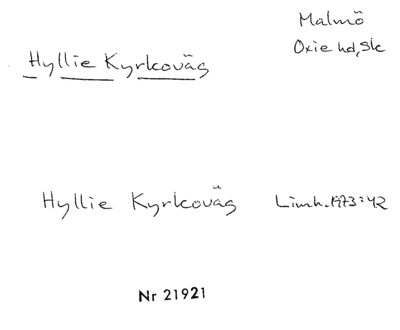 Malmö
Oxie hd, Sk
Hyllie Kyrkoväg
Hyllie Kyrkoväg Limh. 1973:42
Nr 21921